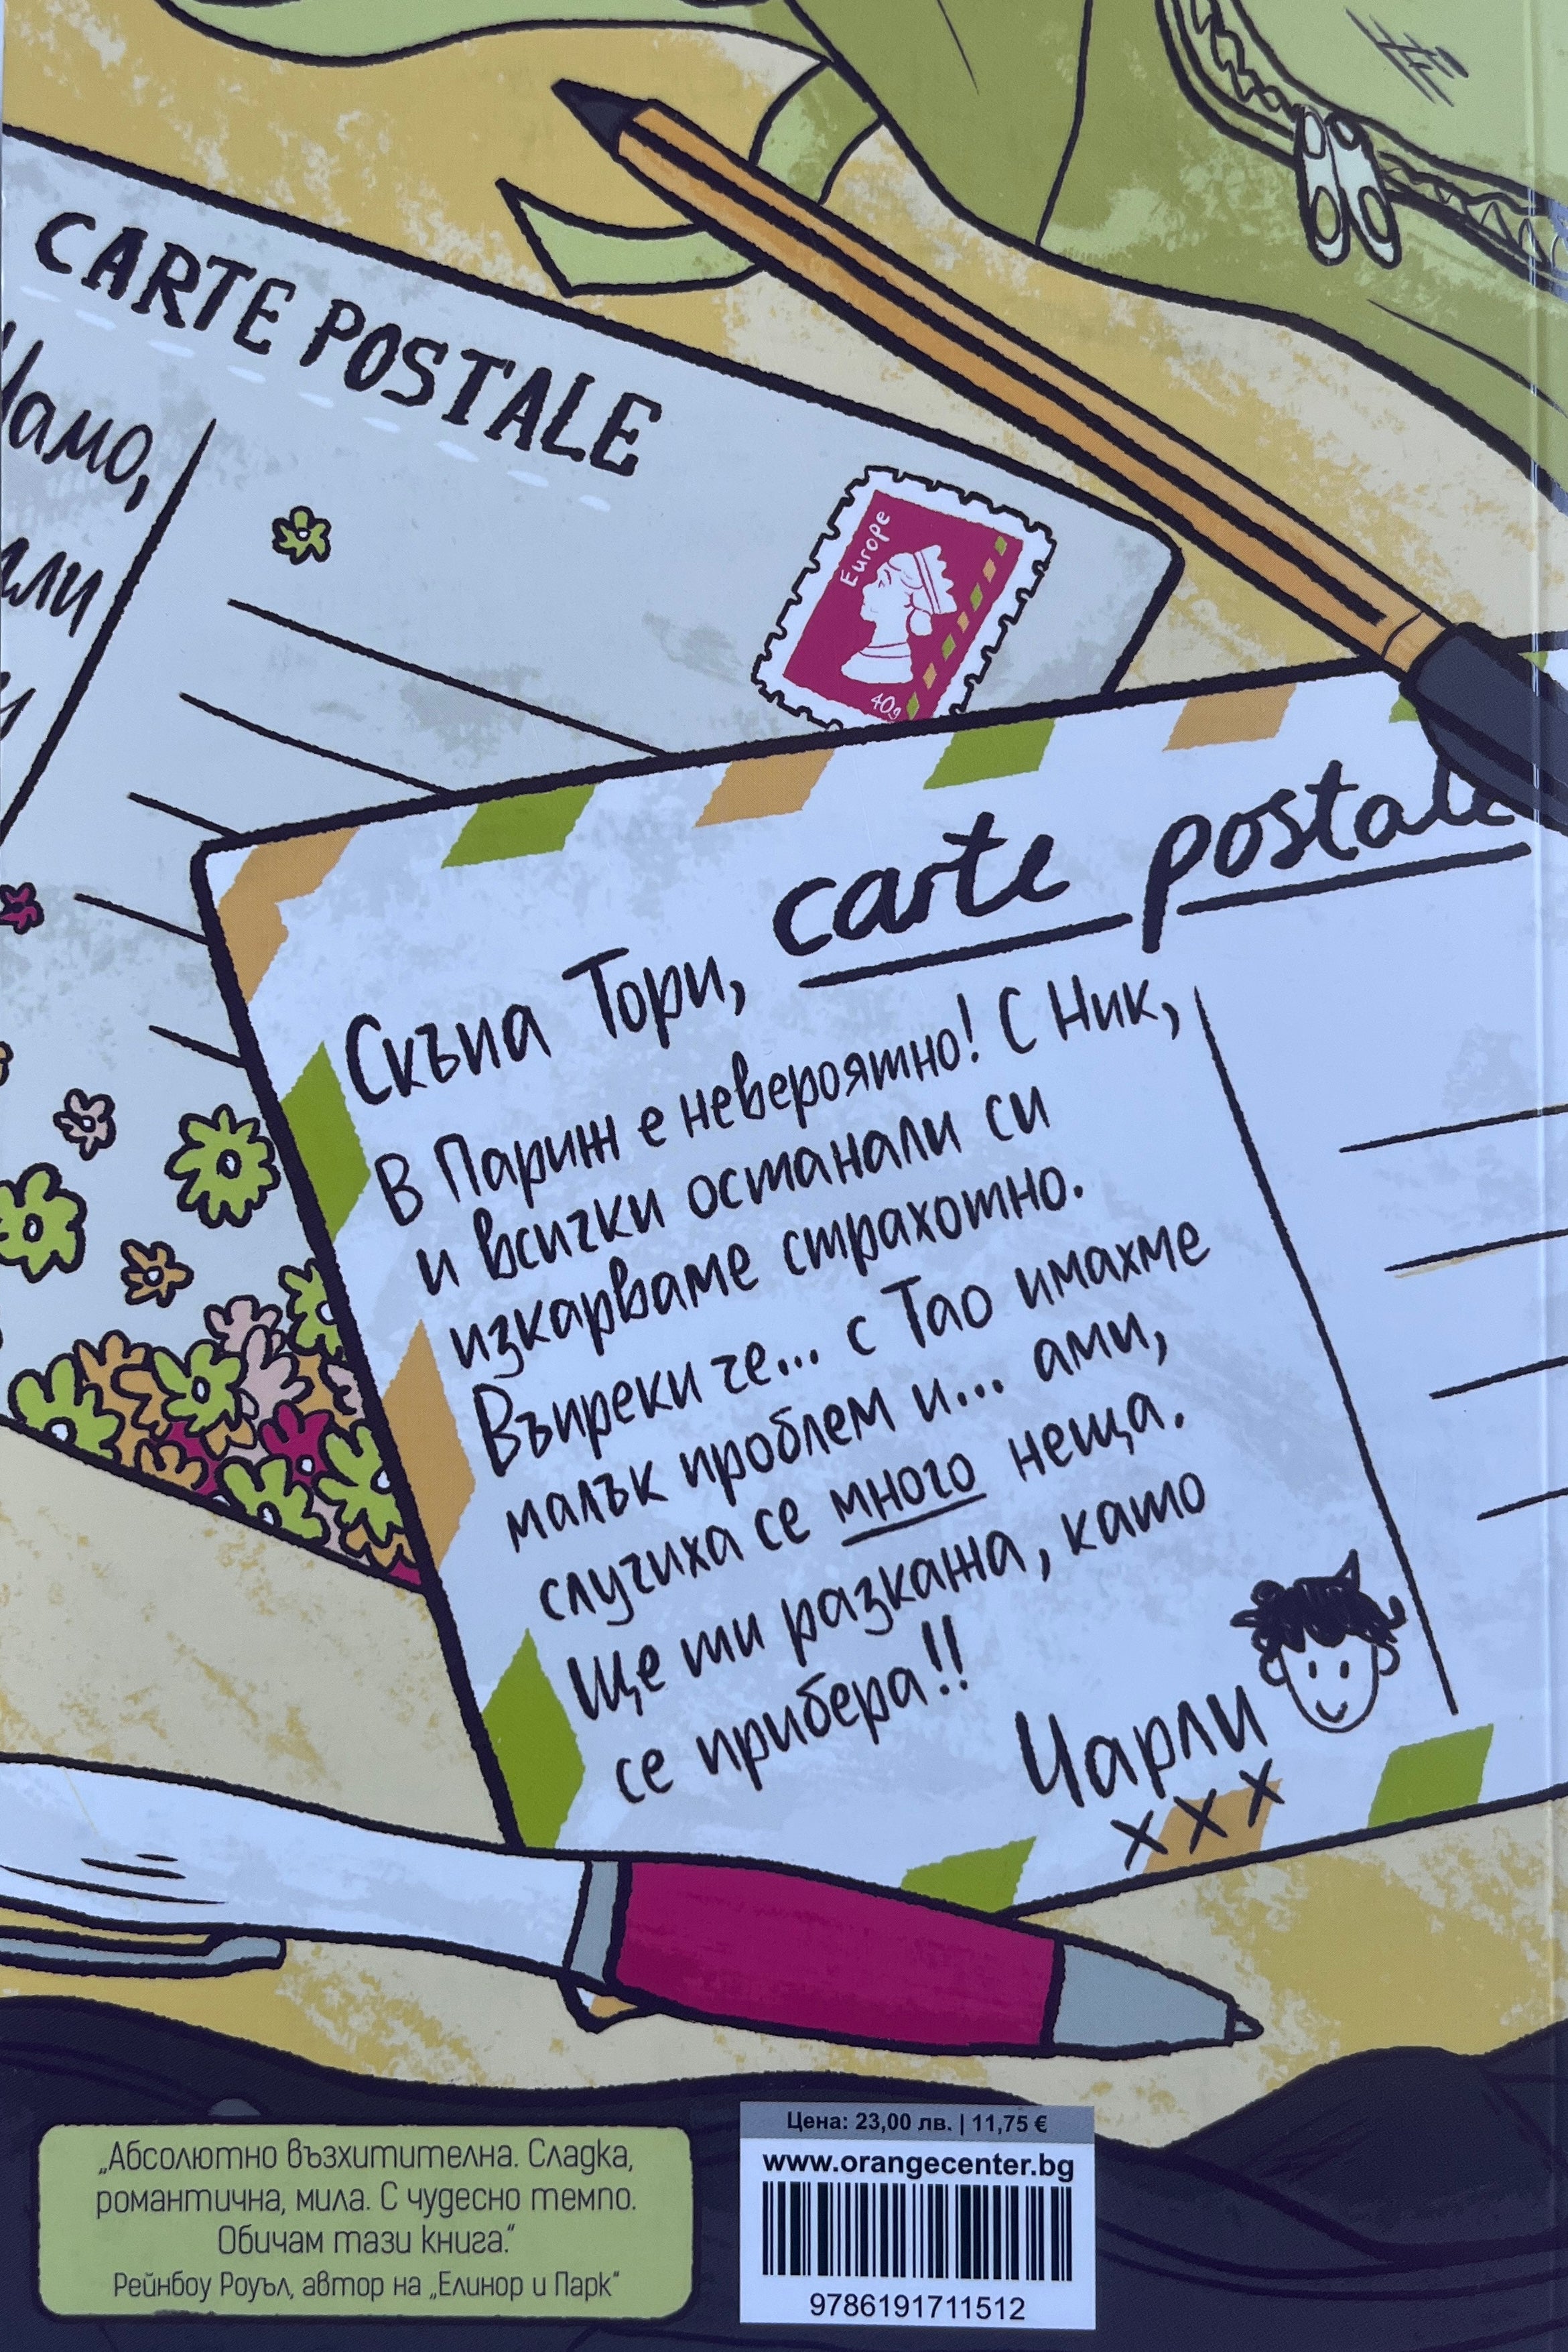 CARTE POSTALE
Europe
40g
carte postale
Скъпа Тори,
В Париж е невероятно! С Ник,
и всички останали си
изкарваме страхотно.
Въпреки че... с Тао имахме
малък проблем и... ами,
случиха се много неща.
Ще ти разкажа, като
се прибера!!
Чарли
xxx
„Абсолютно възхитителна. Сладка,
романтична, мила. С чудесно темпо.
Обичам тази книга.“
Рейнбоу Роуъл, автор на „Елинор и Парк“
Цена: 23,00 лв. | 11,75 €
www.orangecenter.bg
9786191711512